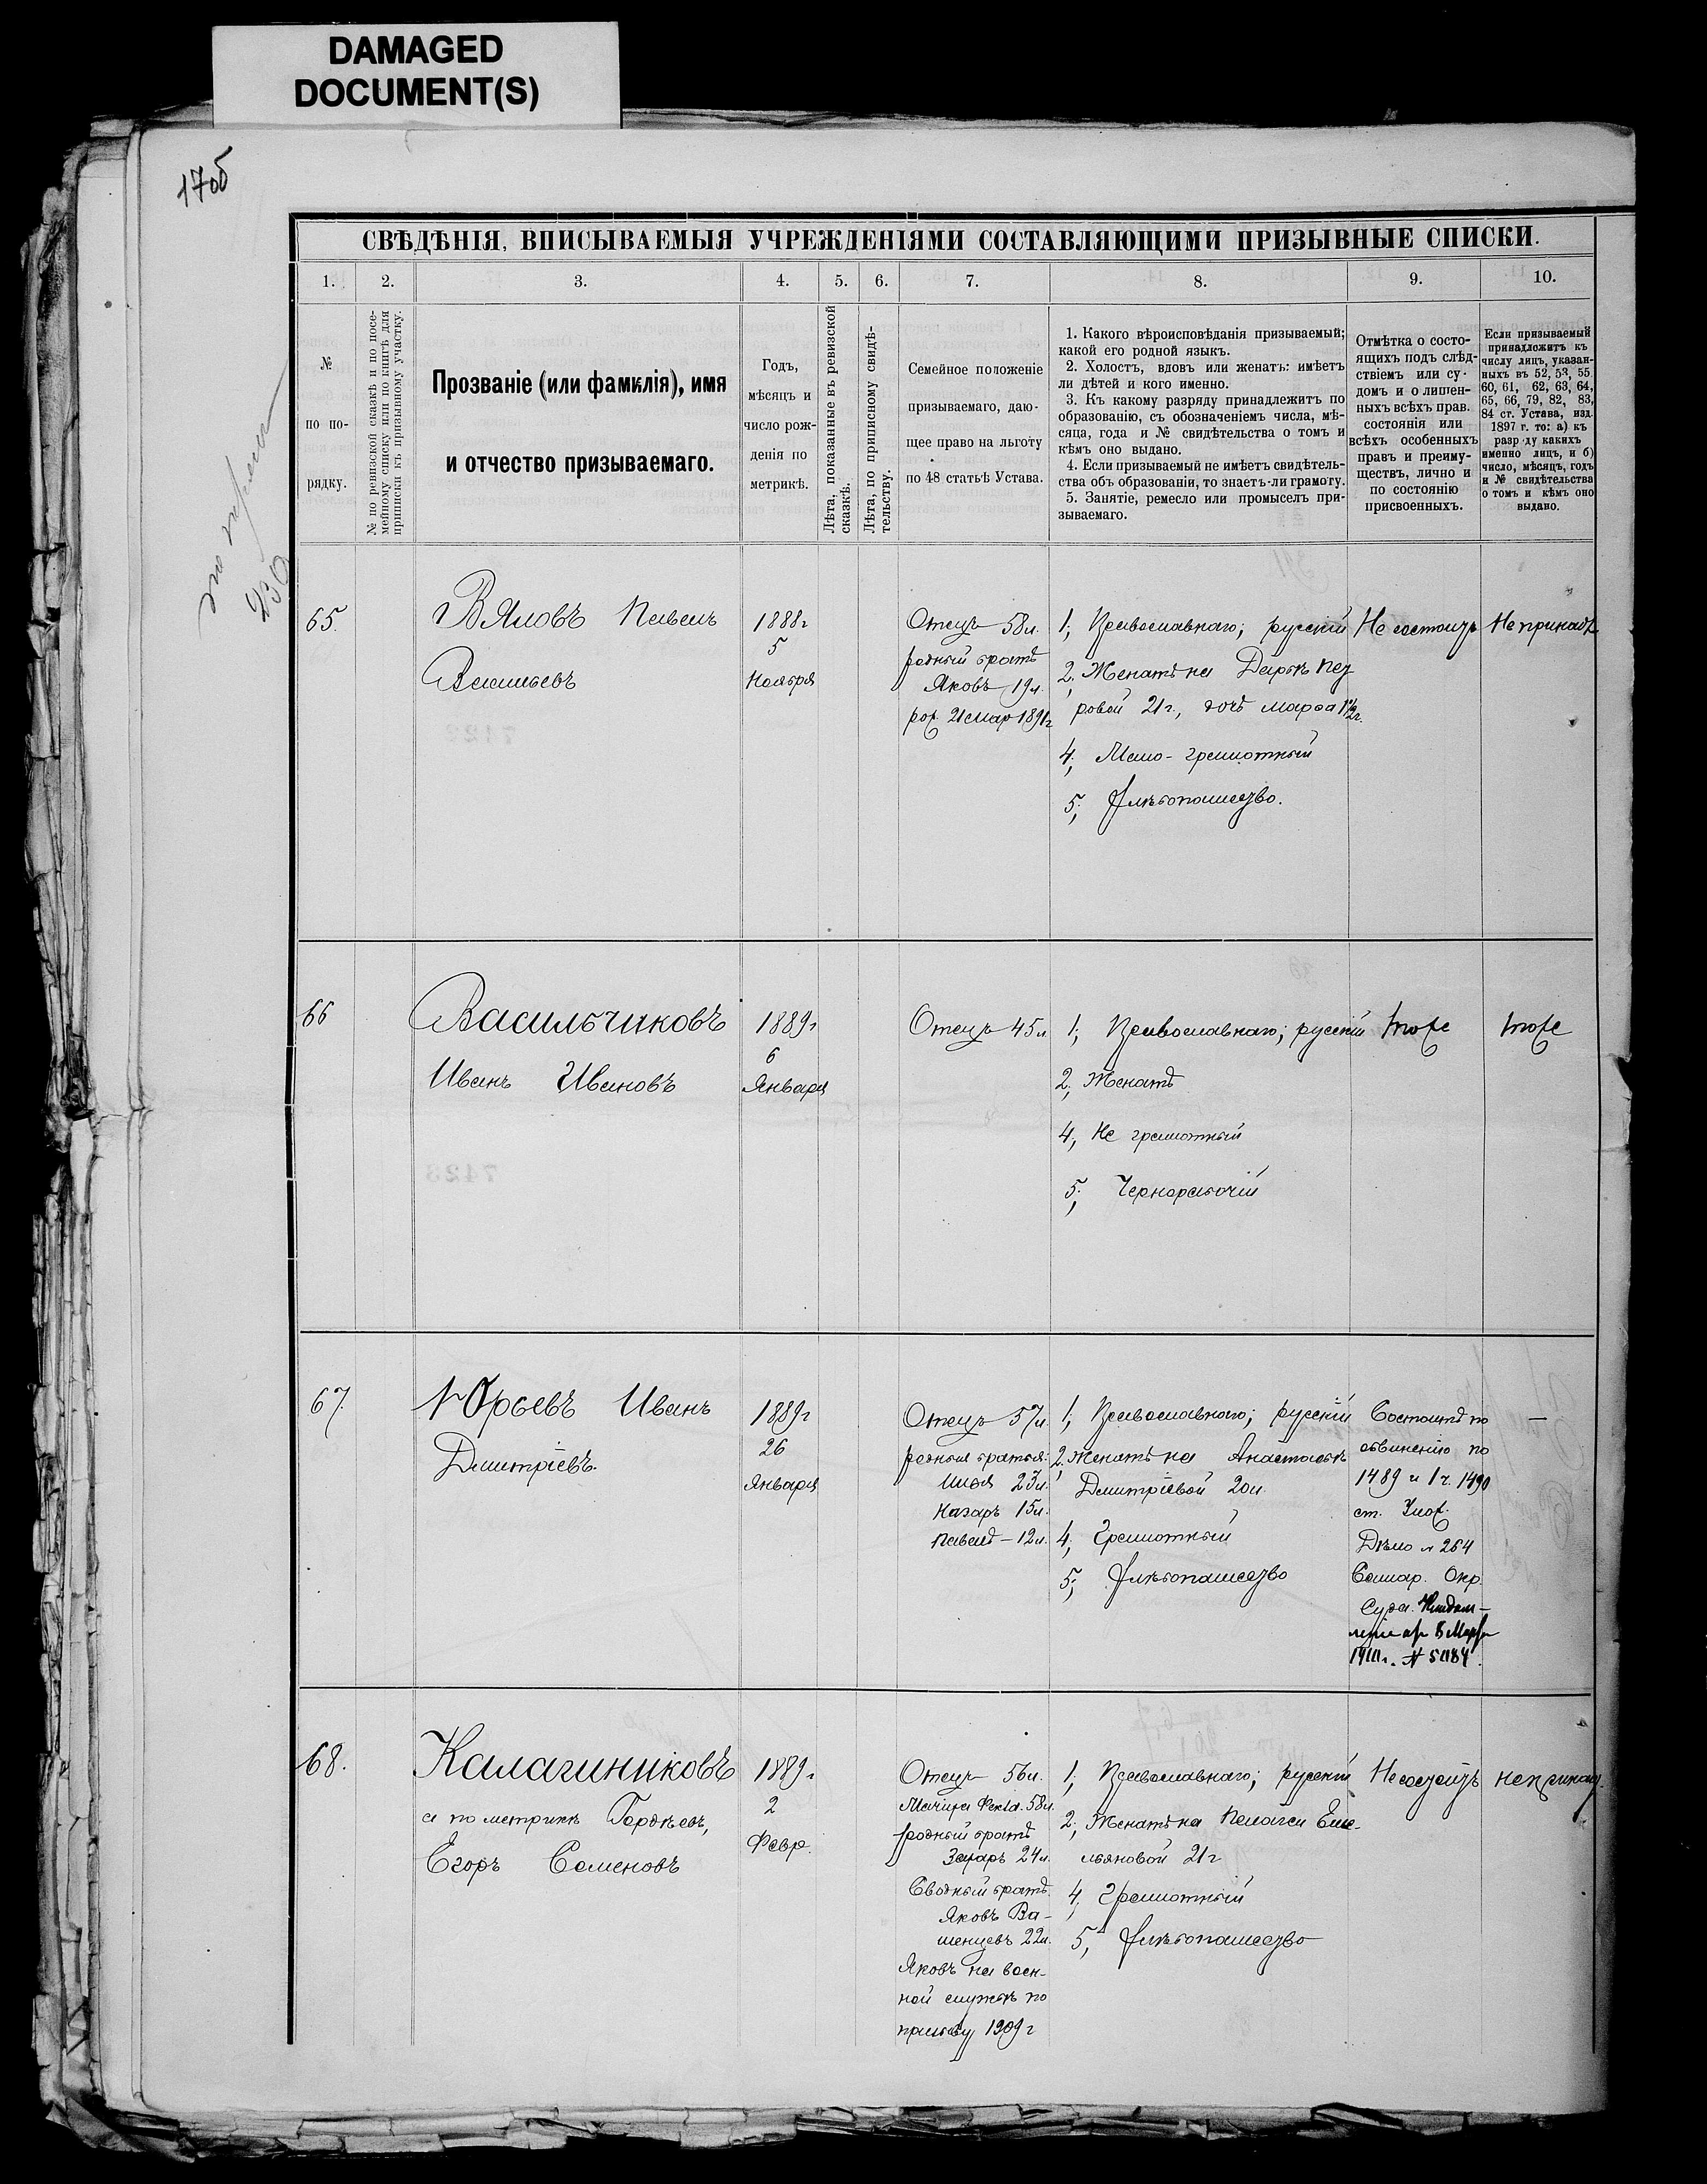 DAMAGED
DOCUMENT(S)
170б
СВѢДѢНІЯ, ВПИСЫВАЕМЫЯ УЧРЕЖДЕНІЯМИ СОСТАВЛЯЮЩИМИ ПРИЗЫВНЫЕ СПИСКИ.
1. 2. 3. 4. 5. 6. 7. 8. 9. 10.
№
по по-
рядку.
№ по ревизской сказкѣ и по посе-
мейному списку или по книгѣ для
приписки къ призывному участку.
Прозваніе (или фамилія), имя
и отчество призываемаго.
Годъ,
мѣсяцъ и
число рож-
денія по
метрикѣ.
Лѣта, показанные въ ревизской
сказкѣ.
Лѣта, по приписному свидѣ-
тельству.
Семейное положеніе
призываемаго, даю-
щее право на льготу
по 48 статьѣ Устава.
1. Какого вѣроисповѣданія призываемый;
какой его родной языкъ.
2. Холостъ, вдовъ или женатъ: имѣетъ
ли дѣтей и кого именно.
3. Къ какому разряду принадлежитъ по
образованію, съ обозначеніемъ числа, мѣ-
сяца, года и № свидѣтельства о томъ и
кѣмъ оно выдано.
4. Если призываемый не имѣетъ свидѣтель-
ства объ образованіи, то знаетъ-ли грамоту.
5. Занятіе, ремесло или промыселъ при-
зываемаго.
Отмѣтка о состо-
ящихъ подъ слѣд-
ствіемъ или су-
домъ и о лишен-
ныхъ всѣхъ прав.
состоянія или
всѣхъ особенныхъ
правъ и преиму-
ществъ, лично и
по состоянію
присвоенныхъ.
Если призываемый
принадлежитъ къ
числу лицъ, указан-
ныхъ въ 52, 53, 55
60, 61, 62, 63, 64,
65, 66, 79, 82, 83,
84 ст. Устава, изд.
1897 г. то: а) къ
разр ду какихъ
именно лицъ, и б)
число, мѣсяцъ, годъ
и № свидѣтельства
о томъ и кѣмъ оно
выдано.
65.
Вяловъ Павелъ
Васильевъ
1888г
5
Ноября
Отецъ 58л.
родный братъ
Яковъ 19л.
род. 21 мар 1891г
1, Православнаго; русскій
2, Женатъ на Дарьѣ Пет
ровой 21 г, дочь Марфа 1 1/2г.
4, Мало-грамотный
5, Хлѣбопашество.
Не состоитъ
Не принадл
66
Васильчиковъ
Иванъ Ивановъ
1889г
6
Января
Отецъ 45л
1, Православнаго; русскій
2, Женатъ
4, Не грамотный
5, Чернорабочій
тоже
тоже
67.
Юрьевъ Иванъ
Дмитріевъ.
1889г
26
Января
Отецъ 57л.
родныя братья:
Илья 23л.
Назаръ 15л.
Павелъ - 12л.
1, Православнаго; русскій
2, Женатъ на Анастасьѣ
Дмитріевой 20л.
4, Грамотный
5, Хлѣбопашество
Состоитъ по
обвиненію по
1489 и 1 ч. 1490
ст. Улож.
Дѣло № 264
Самар. Окр.
Суда.
—
68.
Калагиниковъ
а по метрикѣ Гордѣевъ,
Егоръ Семеновъ
1889г.
2
Февр.
Отецъ 56л.
Мачиха Фекла 58л.
родный братъ
Захаръ 24л.
Сводный братъ
Яковъ Ва-
шенцевъ 22л.
Яковъ на воен-
ной службѣ по
призыву 1909 г
1, Православнаго; русскій
2, Женатъ на Пелагеи Еме-
льяновой 21 г
4, Грамотный
5, Хлѣбопашество
Не состоитъ
не принад.